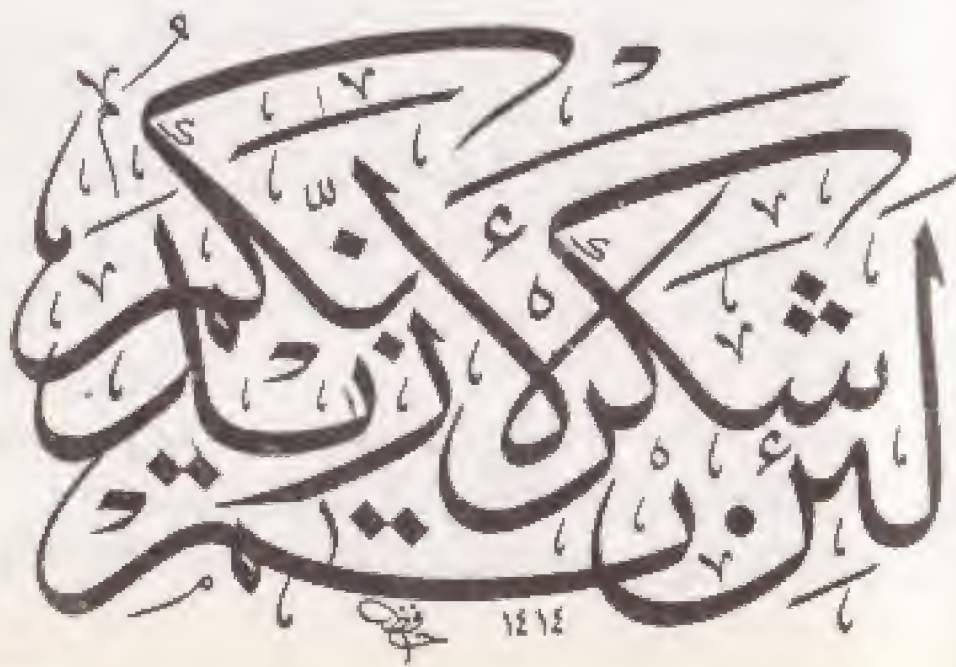 لَئِن شَكَرْتُمْ لَأَزِيدَنَّكُمْ
١٤١٤